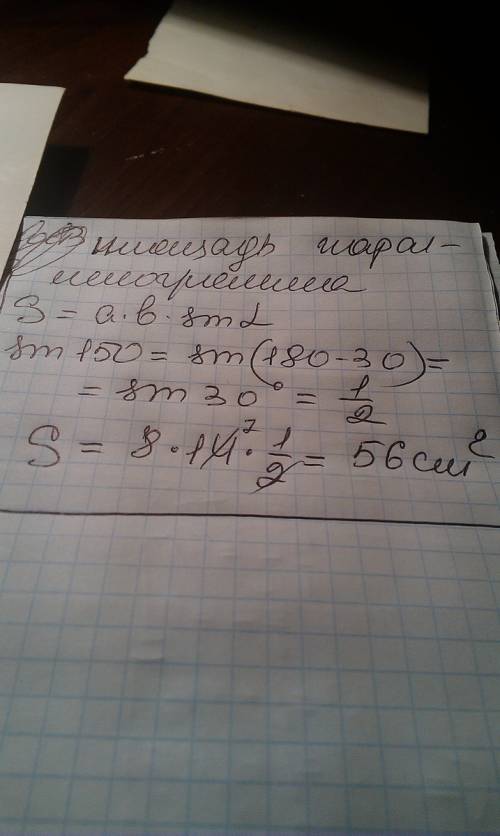 площадь парал-
лелограмма
S = a·b·sin α
sin 150 = sin(180-30) =
= sin 30° = 1/2
S = 8·14·1/2 = 56 см²